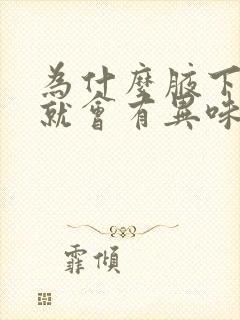 為什麼腋下
就會有異味
霏傾